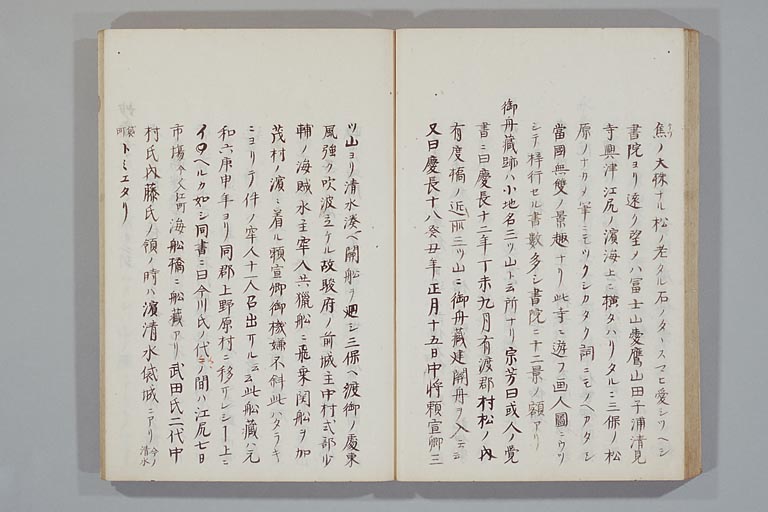 蕉ノ大株ナル松ノ老タル石ノタヽスマヒ愛シツヘシ
書院ヨリ遠ク望メハ冨士山愛鷹山田子浦清見
寺興津江尻ノ濱海上ニ横タハリタルニ三保ノ松
原ノナカメ筆ニモツクシカタク詞ニモノヘカタシ
當国無雙ノ景趣ナリ此寺ニ遊フ画人圖ニウツ
シテ梓行セル書数多シ書院ニ十二景ノ額アリ
御舟蔵跡ハ小地名三ツ山ト云所ナリ宗芳曰或人ノ覚
書ニ曰慶長十二年丁未九月有渡郡村松ノ内
有度橋ノ近所三ツ山ニ御舟蔵建関舟ヲ入云云
又曰慶長十八癸丑年正月十五日中将頼宣卿三
ツ山ヨリ清水湊ヘ関船ヲ廻シ三保ヘ渡御ノ處東
風強ク吹波立ケル故駿府ノ前城主中村式部少
輔ノ海賊水主牢人共猟船ニ飛乗関船ヲ加
茂村ノ濱ニ着ル頼宣卿御機嫌不斜此ハタラキ
ニヨリテ件ノ牢人十一人召出サルヽ云云此船蔵ハ元
和六庚申年ヨリ同郡上野原村ニ移サレシー上ニ
イヘルカ如シ同書ニ曰今川氏ノ代ノ間ハ江尻七日
市場今ノ入江町海船橋ニ船蔵アリ武田氏二代中
村氏内藤氏ノ領ノ時ハ濱清水袋城ニアリ今ノ清水
袋町トミエタリ